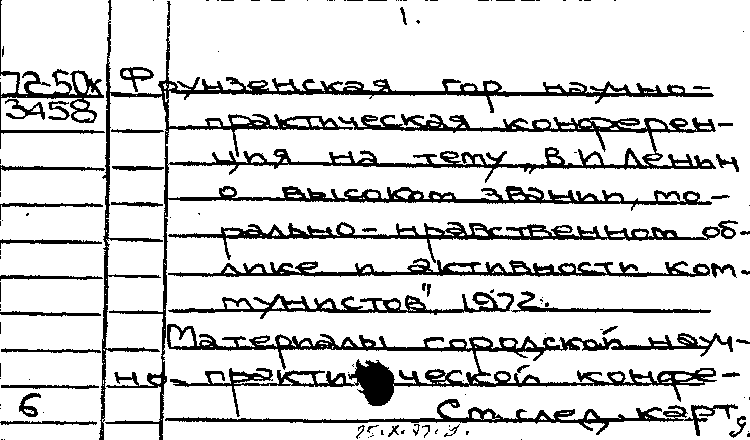 1.
72-50к Фрунзенская гор научно-
3458 практическая конферен-
ция на тему „В.И Ленин
о высоком звании, мо-
рально-нравственном об-
лике и активности ком-
мунистов", 1972.
Материалы городской науч-
но-практической конфе-
6 См. след. карт.
25.X.77.